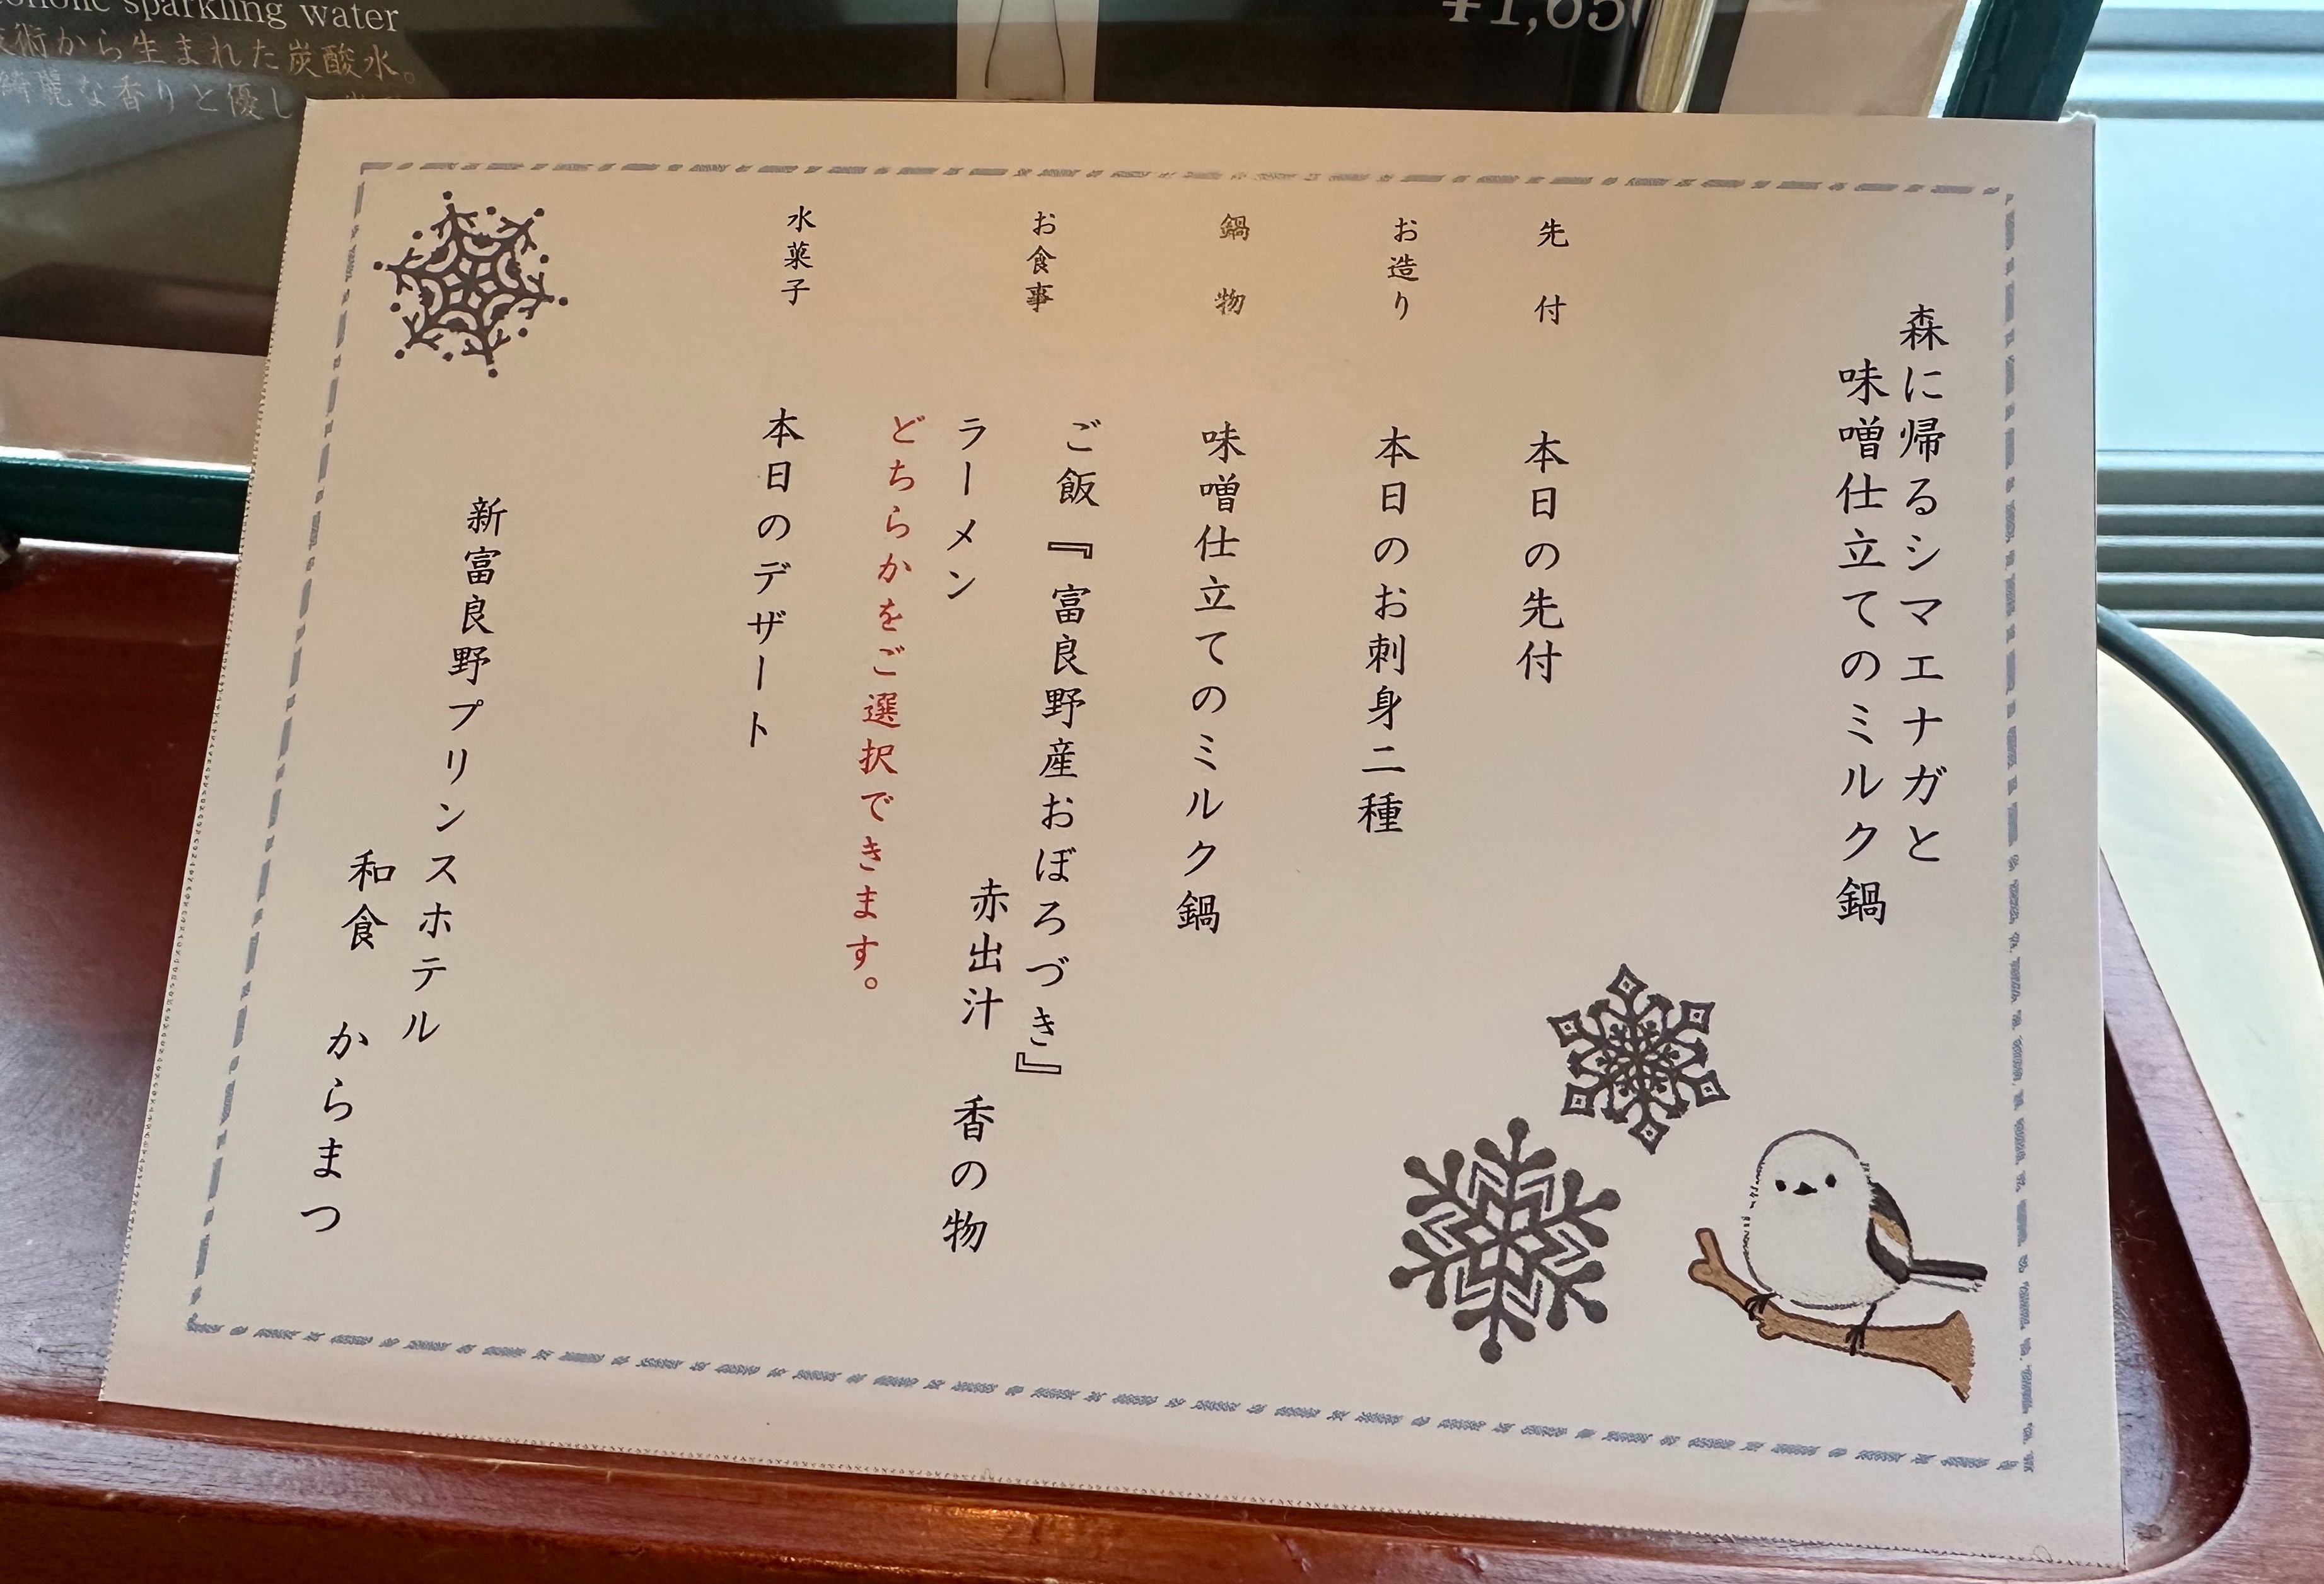 森に帰るシマエナガと
味噌仕立てのミルク鍋
先付
本日の先付
お造り
本日のお刺身二種
鍋物
味噌仕立てのミルク鍋
お食事
ご飯『富良野産おぼろづき』
赤出汁 香の物
ラーメン
どちらかをご選択できます。
水菓子
本日のデザート
新富良野プリンスホテル
和食 からまつ
sparkling water
術から生まれた炭酸水。
綺麗な香りと優し
¥1,65